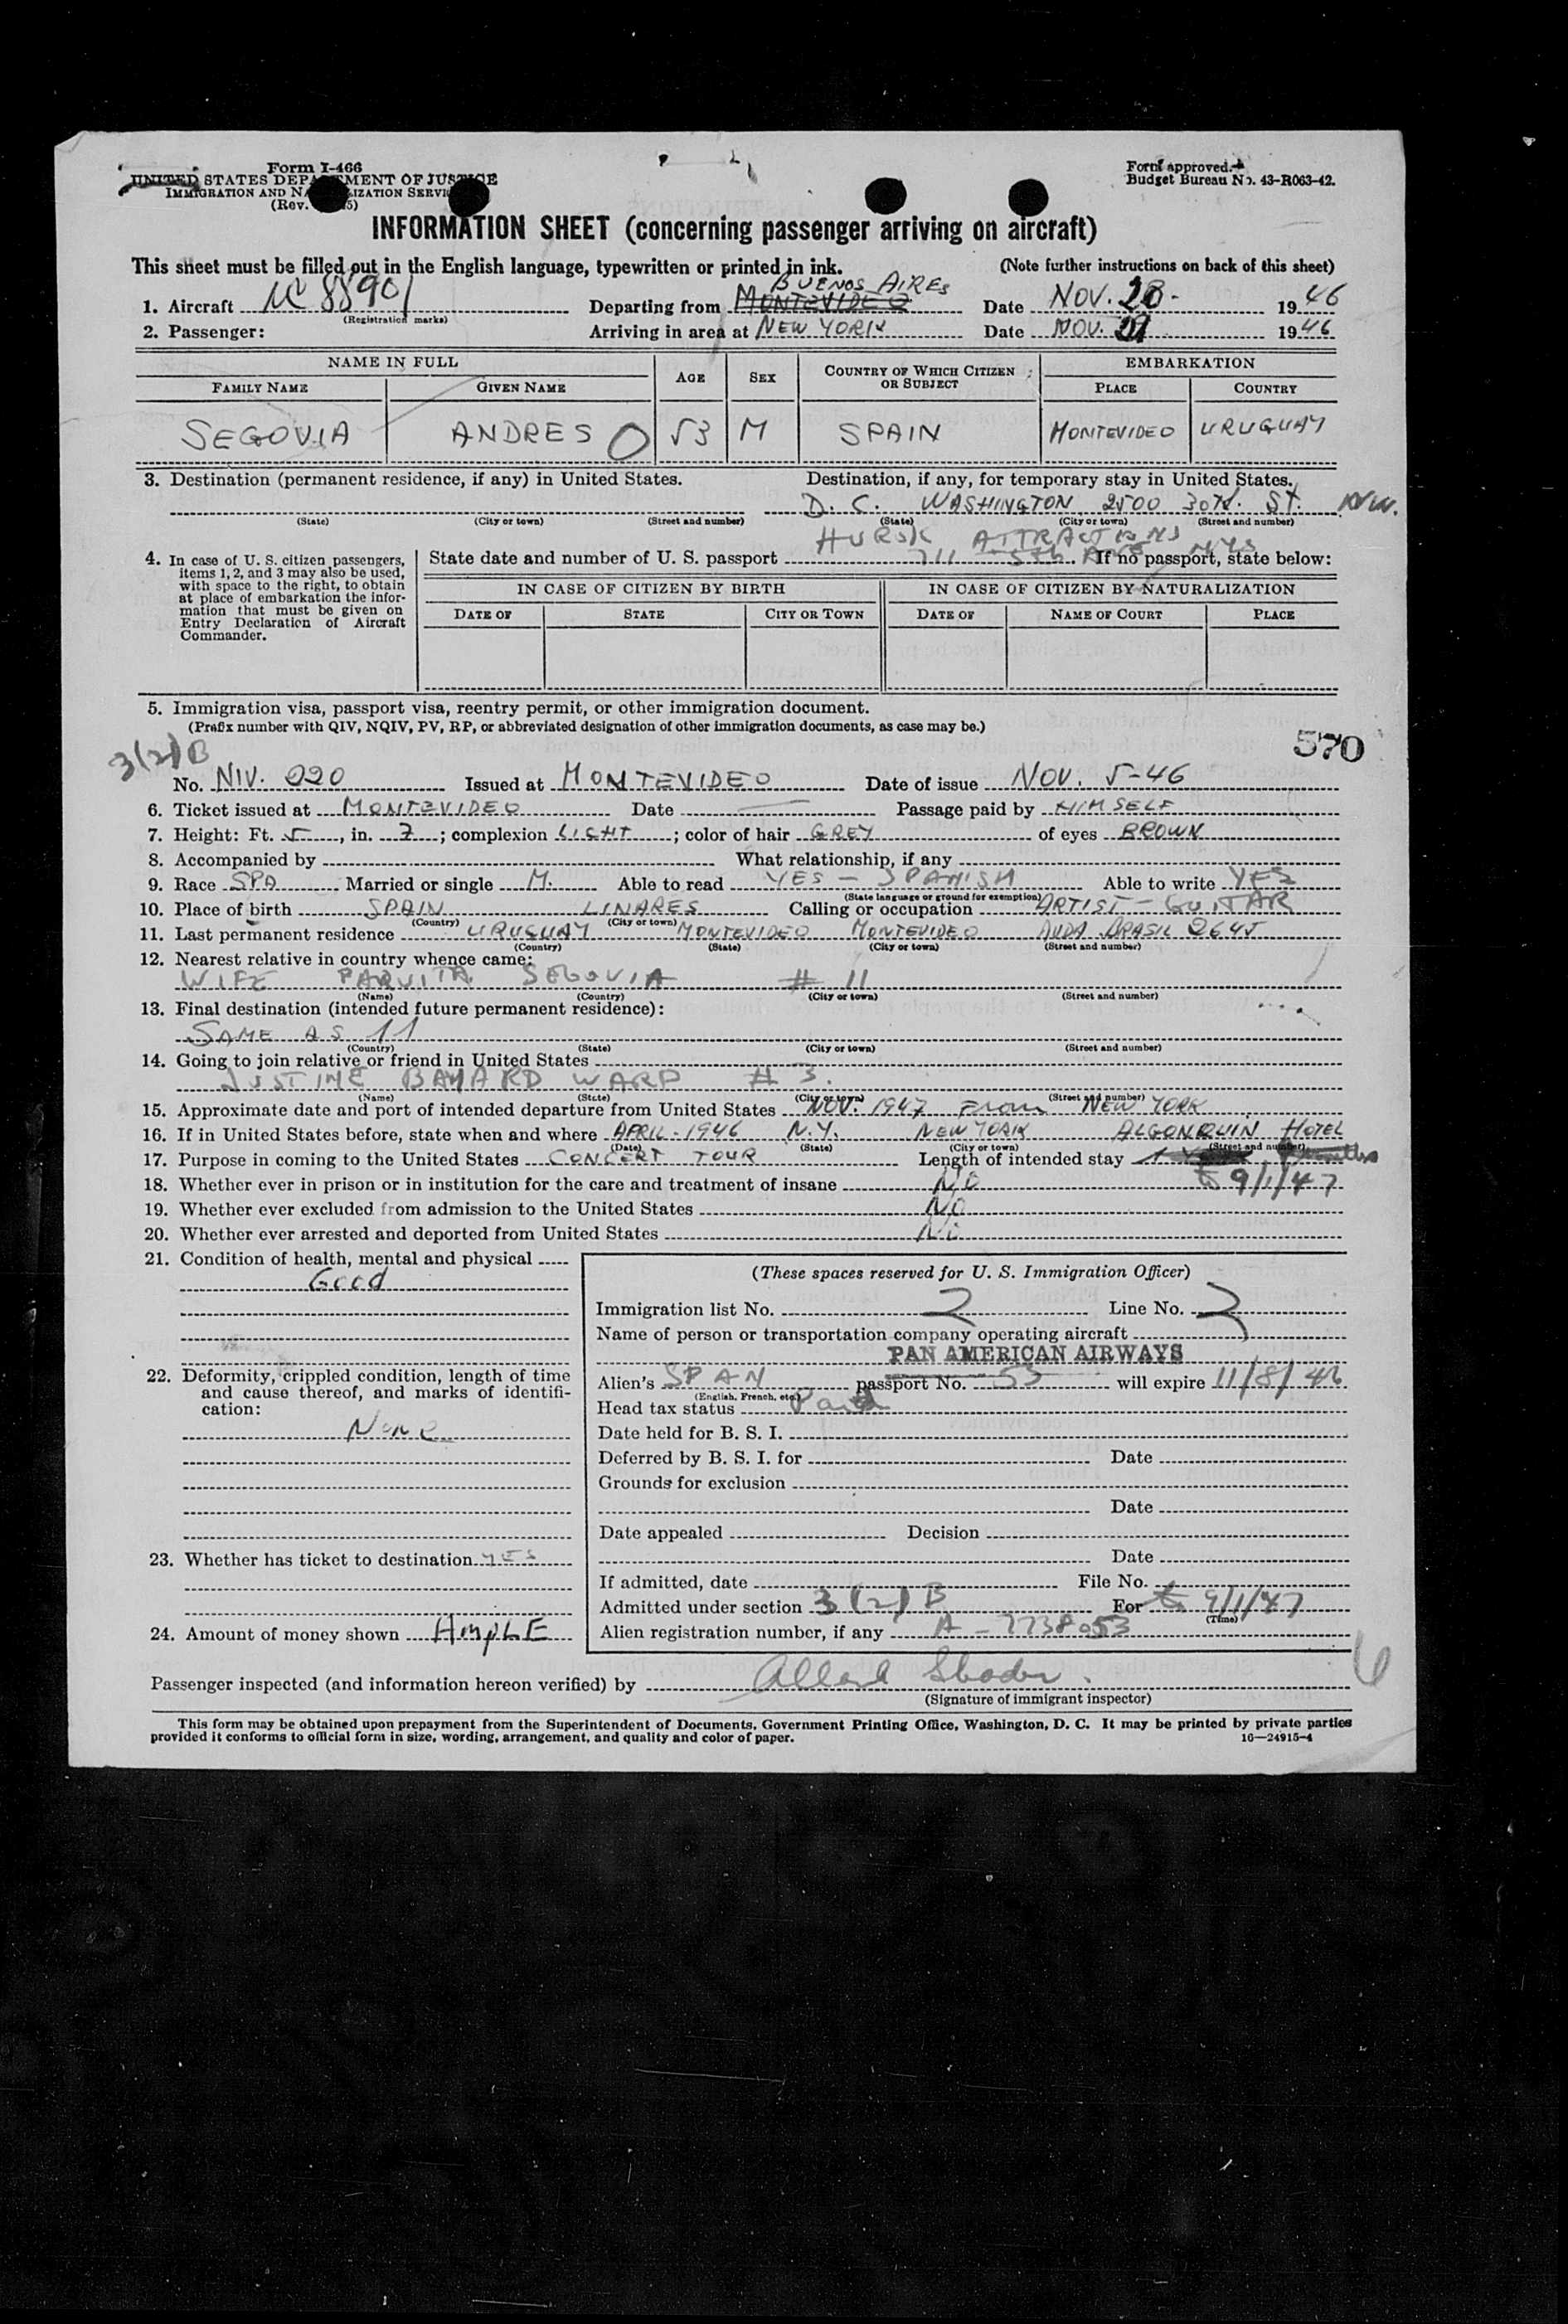 Form I-466
UNITED STATES DEPARTMENT OF JUSTICE
IMMIGRATION AND NATURALIZATION SERVICE
(Rev. 5)
Form approved.
Budget Bureau No. 43-R063-42.
INFORMATION SHEET (concerning passenger arriving on aircraft)
This sheet must be filled out in the English language, typewritten or printed in ink. (Note further instructions on back of this sheet)
BUENOS AIRES
1. Aircraft NC 88901 Departing from MONTEVIDEO Date NOV. 28- 1946
(Registration marks)
2. Passenger: Arriving in area at NEW YORK Date NOV. 1946
NAME IN FULL AGE SEX COUNTRY OF WHICH CITIZEN OR SUBJECT EMBARKATION
FAMILY NAME GIVEN NAME PLACE COUNTRY
SEGOVIA ANDRES 53 M SPAIN MONTEVIDEO URUGUAY
3. Destination (permanent residence, if any) in United States. Destination, if any, for temporary stay in United States.
D. C. WASHINGTON 2500 30th. ST. NW.
(State) (City or town) (Street and number) (State) (City or town) (Street and number)
HUROK ATTRACTIONS
711 5th AVE NYC
4. In case of U. S. citizen passengers, items 1, 2, and 3 may also be used, with space to the right, to obtain at place of embarkation the information that must be given on Entry Declaration of Aircraft Commander.
State date and number of U. S. passport If no passport, state below:
IN CASE OF CITIZEN BY BIRTH IN CASE OF CITIZEN BY NATURALIZATION
DATE OF STATE CITY OR TOWN DATE OF NAME OF COURT PLACE
5. Immigration visa, passport visa, reentry permit, or other immigration document.
(Prefix number with QIV, NQIV, PV, RP, or abbreviated designation of other immigration documents, as case may be.)
570
3(2)B
No. NIV. 020 Issued at MONTEVIDEO Date of issue NOV. 5-46
6. Ticket issued at MONTEVIDEO Date Passage paid by HIMSELF
7. Height: Ft. 5, in. 7; complexion LIGHT; color of hair GREY of eyes BROWN
8. Accompanied by What relationship, if any
9. Race SPA Married or single M. Able to read YES - SPANISH Able to write YES
(State language or ground for exemption)
10. Place of birth SPAIN LINARES Calling or occupation ARTIST - GUITAR
(Country) (City or town)
11. Last permanent residence URUGUAY MONTEVIDEO MONTEVIDEO AVDA BRASIL 2645
(Country) (State) (City or town) (Street and number)
12. Nearest relative in country whence came:
WIFE PAQUITA SEGOVIA # 11
(Name) (Country) (City or town) (Street and number)
13. Final destination (intended future permanent residence):
SAME AS 11
(Country) (State) (City or town) (Street and number)
14. Going to join relative or friend in United States
JUSTINE BAYARD WARD # 3.
(Name) (State) (City or town) (Street and number)
15. Approximate date and port of intended departure from United States NOV. 1947 From NEW YORK
16. If in United States before, state when and where APRIL-1946 N.Y. NEW YORK ALGONQUIN HOTEL
(Date) (State) (City or town) (Street and number)
17. Purpose in coming to the United States CONCERT TOUR Length of intended stay
18. Whether ever in prison or in institution for the care and treatment of insane NO to 9/1/47
19. Whether ever excluded from admission to the United States NO
20. Whether ever arrested and deported from United States No
21. Condition of health, mental and physical
Good
22. Deformity, crippled condition, length of time and cause thereof, and marks of identification:
None
23. Whether has ticket to destination YES
24. Amount of money shown AMPLE
(These spaces reserved for U. S. Immigration Officer)
Immigration list No. 2 Line No. 2
Name of person or transportation company operating aircraft
PAN AMERICAN AIRWAYS
Alien's SPAN passport No. 53 will expire 11/8/46
(English, French, etc.)
Head tax status Paid
Date held for B. S. I.
Deferred by B. S. I. for Date
Grounds for exclusion
Date
Date appealed Decision
Date
If admitted, date File No.
Admitted under section 3(2)B For to 9/1/47
(Time)
Alien registration number, if any A-7738053
Passenger inspected (and information hereon verified) by
(Signature of immigrant inspector)
This form may be obtained upon prepayment from the Superintendent of Documents, Government Printing Office, Washington, D. C. It may be printed by private parties
provided it conforms to official form in size, wording, arrangement, and quality and color of paper. 16—24915-4